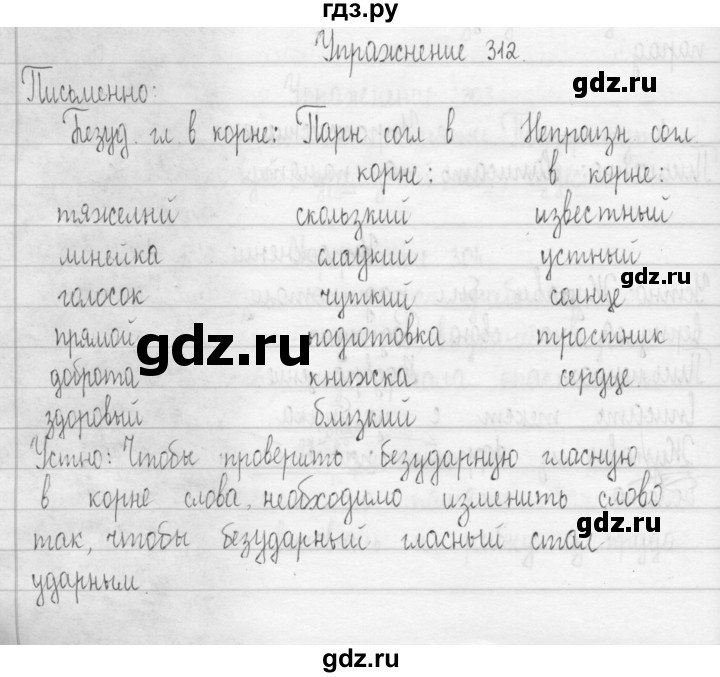 гдз.ру
Упражнение 312.
gdz.ru
Письменно:
Безуд. гл в корне: Парн согл в Непроизн согл
корне: в корне:
тяжелый скользкий известный
линейка сладкий устный
gdz.ru
голосок чуткий солнце
прямой подготовка тростник
gdz.ru
доброта книжка сердце
здоровый близкий
Устно: Чтобы проверить безударную гласную
в корне слова, необходимо изменить слово
gdz.ru
так, чтобы безударный гласный стал
ударным.
gdz.ru